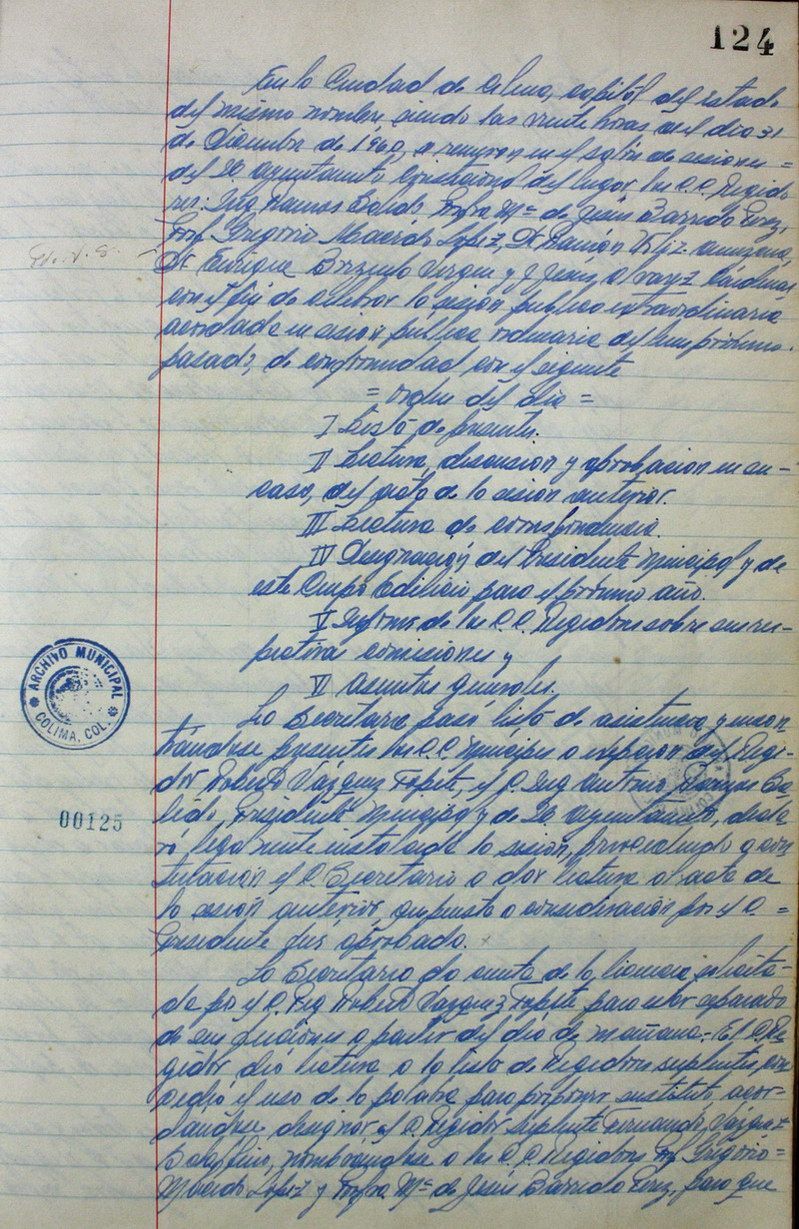 124
En la Ciudad de Colima, capital del Estado
del mismo nombre siendo las veinte horas del día 31
de diciembre de 1960, se reunieron en el salón de sesiones =
del H. Ayuntamiento Constitucional del lugar los C.C. Regido
res: Ing. Ramos Salido, Profra Mª de Jesús Barreda Pérez,
Prof. Gregorio Macedo López, Dr. Ramón
Dr. Enrique Brizuela Virgen y J. Jesús Alvarez Cárdenas
con el fin de celebrar la sesión pública extraordinaria
acordada en sesión pública ordinaria del próximo
pasado, de conformidad con el siguiente
= orden del día =
I Lista de presentes.
II Lectura, discusión y aprobación en su -
caso, del acta de la sesión anterior.
III Lectura de correspondencia.
IV Designación del Presidente Municipal y de
este Cuerpo Edilicio para el próximo año.
V Informe de los C.C. Regidores sobre sus res-
pectivas comisiones y
VI Asuntos generales.
La Secretaría pasó lista de asistencia y encon
trándose presentes los C.C. Munícipes a excepción del Regi-
dor Roberto Vázquez Tapia, el C. Ing Antonio Ramos Sa-
lido, Presidente Municipal y de H. Ayuntamiento, decla
ró legalmente instalada la sesión, procediendo a con
tinuación el C. Secretario a dar lectura al acta de
la sesión anterior, que puesta a consideración por el C. =
Presidente fué aprobada.
La Secretaría da cuenta de la licencia solicita-
da por el C. Reg Roberto Vázquez Tapia para estar separado
de sus funciones a partir del día de mañana. El C. Re
gidor dió lectura a la lista de Regidores suplentes, con
cedió el uso de la palabra para proponer sustituto acor-
dándose designar al C. Regidor Suplente Fernando Vázquez
nombrándose a los C.C. Regidores Prof Gregorio =
Macedo López y Profra Mª de Jesús Barreda Pérez, para que
ARCHIVO MUNICIPAL
COLIMA, COL.
00125